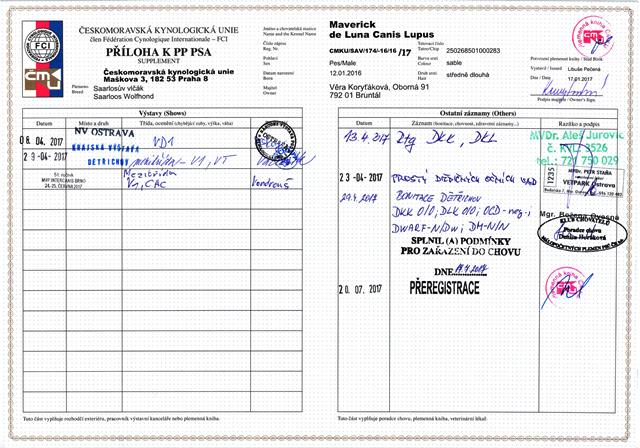 ČESKOMORAVSKÁ KYNOLOGICKÁ UNIE
člen Fédération Cynologique Internationale – FCI
PŘÍLOHA K PP PSA
SUPPLEMENT
Českomoravská kynologická unie
Maškova 3, 182 53 Praha 8
FCI
Plemeno
Breed
Saarlosův vlčák
Saarloos Wolfhond
Jméno a chovatelská stanice
Name and the Kennel Name
Maverick
de Luna Canis Lupus
Číslo zápisu
Reg. Nr.
CMKU/SAV/174/-16/16 /17
Tetovací číslo
Tatoo/Chip
250268501000283
Pohlaví
Sex
Pes/Male
Barva srsti
Colour
sable
Datum narození
Born
12.01.2016
Druh srsti
Hair
středně dlouhá
Majitel
Owner
Věra Koryťáková, Oborná 91
792 01 Bruntál
Potvrzení plemenné knihy / Stud Book
Issued by: Libuše Pečená
Dne / Date 17.01.2017
Podpis majitele / Owner's Sign.
Výstavy (Shows)
Datum
Místo a druh
Třída, ocenění (chybějící zuby, výška, váha)
Razítko a podpis
08. 04. 2017 NV OSTRAVA VD1
KRAJSKÁ VÝSTAVA
29-04-2017 DĚTŘICHOV V1, VT
51. ročník
MVP INTERCANIS BRNO
24.-25. ČERVNA 2017
Mezitřída
V1, CAC
Tato část vyplňuje rozhodčí exteriéru, pracovník výstavní kanceláře nebo plemenná kniha.
Ostatní záznamy (Others)
Datum
Záznam (bonitace, chovnost, zdravotní záznamy...)
Razítko a podpis
13.4.2017 Rtg DKK, DKL
MVDr. Aleš Jurovic
č. KVL 3526
tel.: 721 750 029
23-04-2017 PROSTÝ DĚDIČNÝCH OČNÍCH VAD
MVDr. PETR STAŇA
VETPARK Ostrava
1235
29.4.2017 BONITACE DĚTŘICHOV
DKK 0/0; DLK 0/0; OCD-neg.;
DWARF-N/DW; DM-N/N
SPLNIL (A) PODMÍNKY
PRO ZAŘAZENÍ DO CHOVU
DNE
KLUB CHOVATELŮ
Poradce chovu
MÁLOPOČETNÝCH PLEMEN PSŮ
20. 07. 2017 PŘEREGISTRACE
Tuto část vyplňuje poradce chovu, plemenná kniha, veterinární lékař.